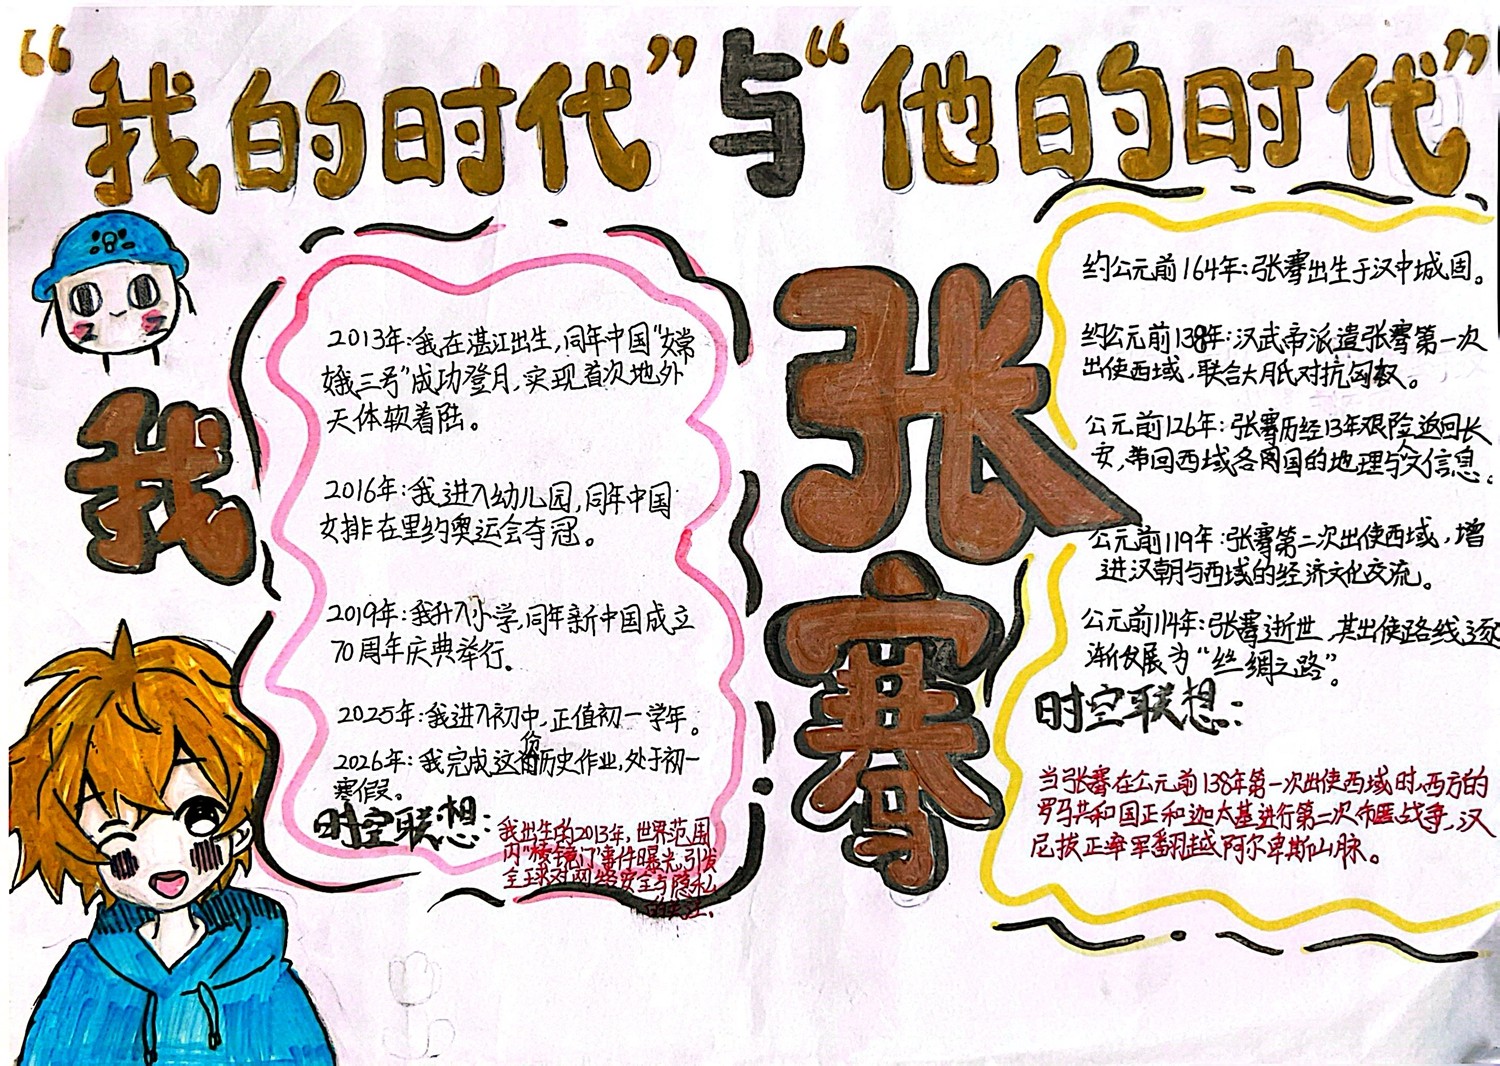 “我的时代”与“他的时代”
我
2013年:我在湛江出生,同年中国“嫦
娥三号”成功登月,实现首次地外
天体软着陆。
2016年:我进入幼儿园,同年中国
女排在里约奥运会夺冠。
2019年:我升入小学,同年新中国成立
70周年庆典举行。
2025年:我进入初中,正值初一学年。
2026年:我完成这份历史作业,处于初一
寒假。
时空联想:
我出生的2013年,世界范围
内“棱镜门”事件曝光,引发
全球对网络安全与隐私
的关注。
张
骞
约公元前164年:张骞出生于汉中城固。
约公元前138年:汉武帝派遣张骞第一次
出使西域,联合大月氏对抗匈奴。
公元前126年:张骞历经13年艰险返回长
安,带回西域各国的地理与人文信息。
公元前119年:张骞第二次出使西域,增
进汉朝与西域的经济文化交流。
公元前114年:张骞逝世,其出使路线逐
渐发展为“丝绸之路”。
时空联想:
当张骞在公元前138年第一次出使西域时,西方的
罗马共和国正和迦太基进行第二次布匿战争,汉
尼拔正率军翻越阿尔卑斯山脉。